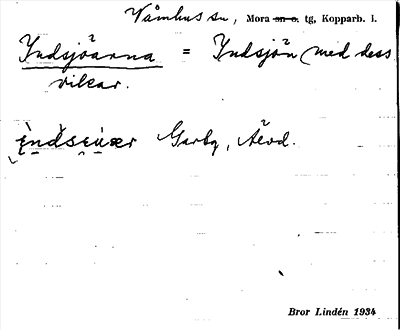 Våmhus sn, Mora sn o. tg, Kopparb. l.
Yndsjöarna = Yndsjön (med dess
vikar.
Garby, Älvd.
Bror Lindén 1934